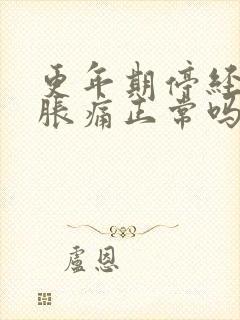 更年期停经
胀痛正常吗
盧恩